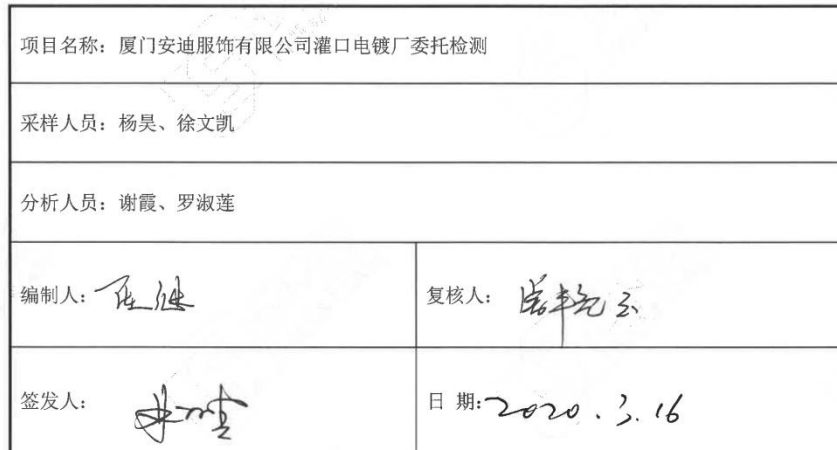 项目名称：厦门安迪服饰有限公司灌口电镀厂委托检测
采样人员：杨昊、徐文凯
分析人员：谢霞、罗淑莲
编制人：
复核人：
签发人：
日 期：2020.3.16